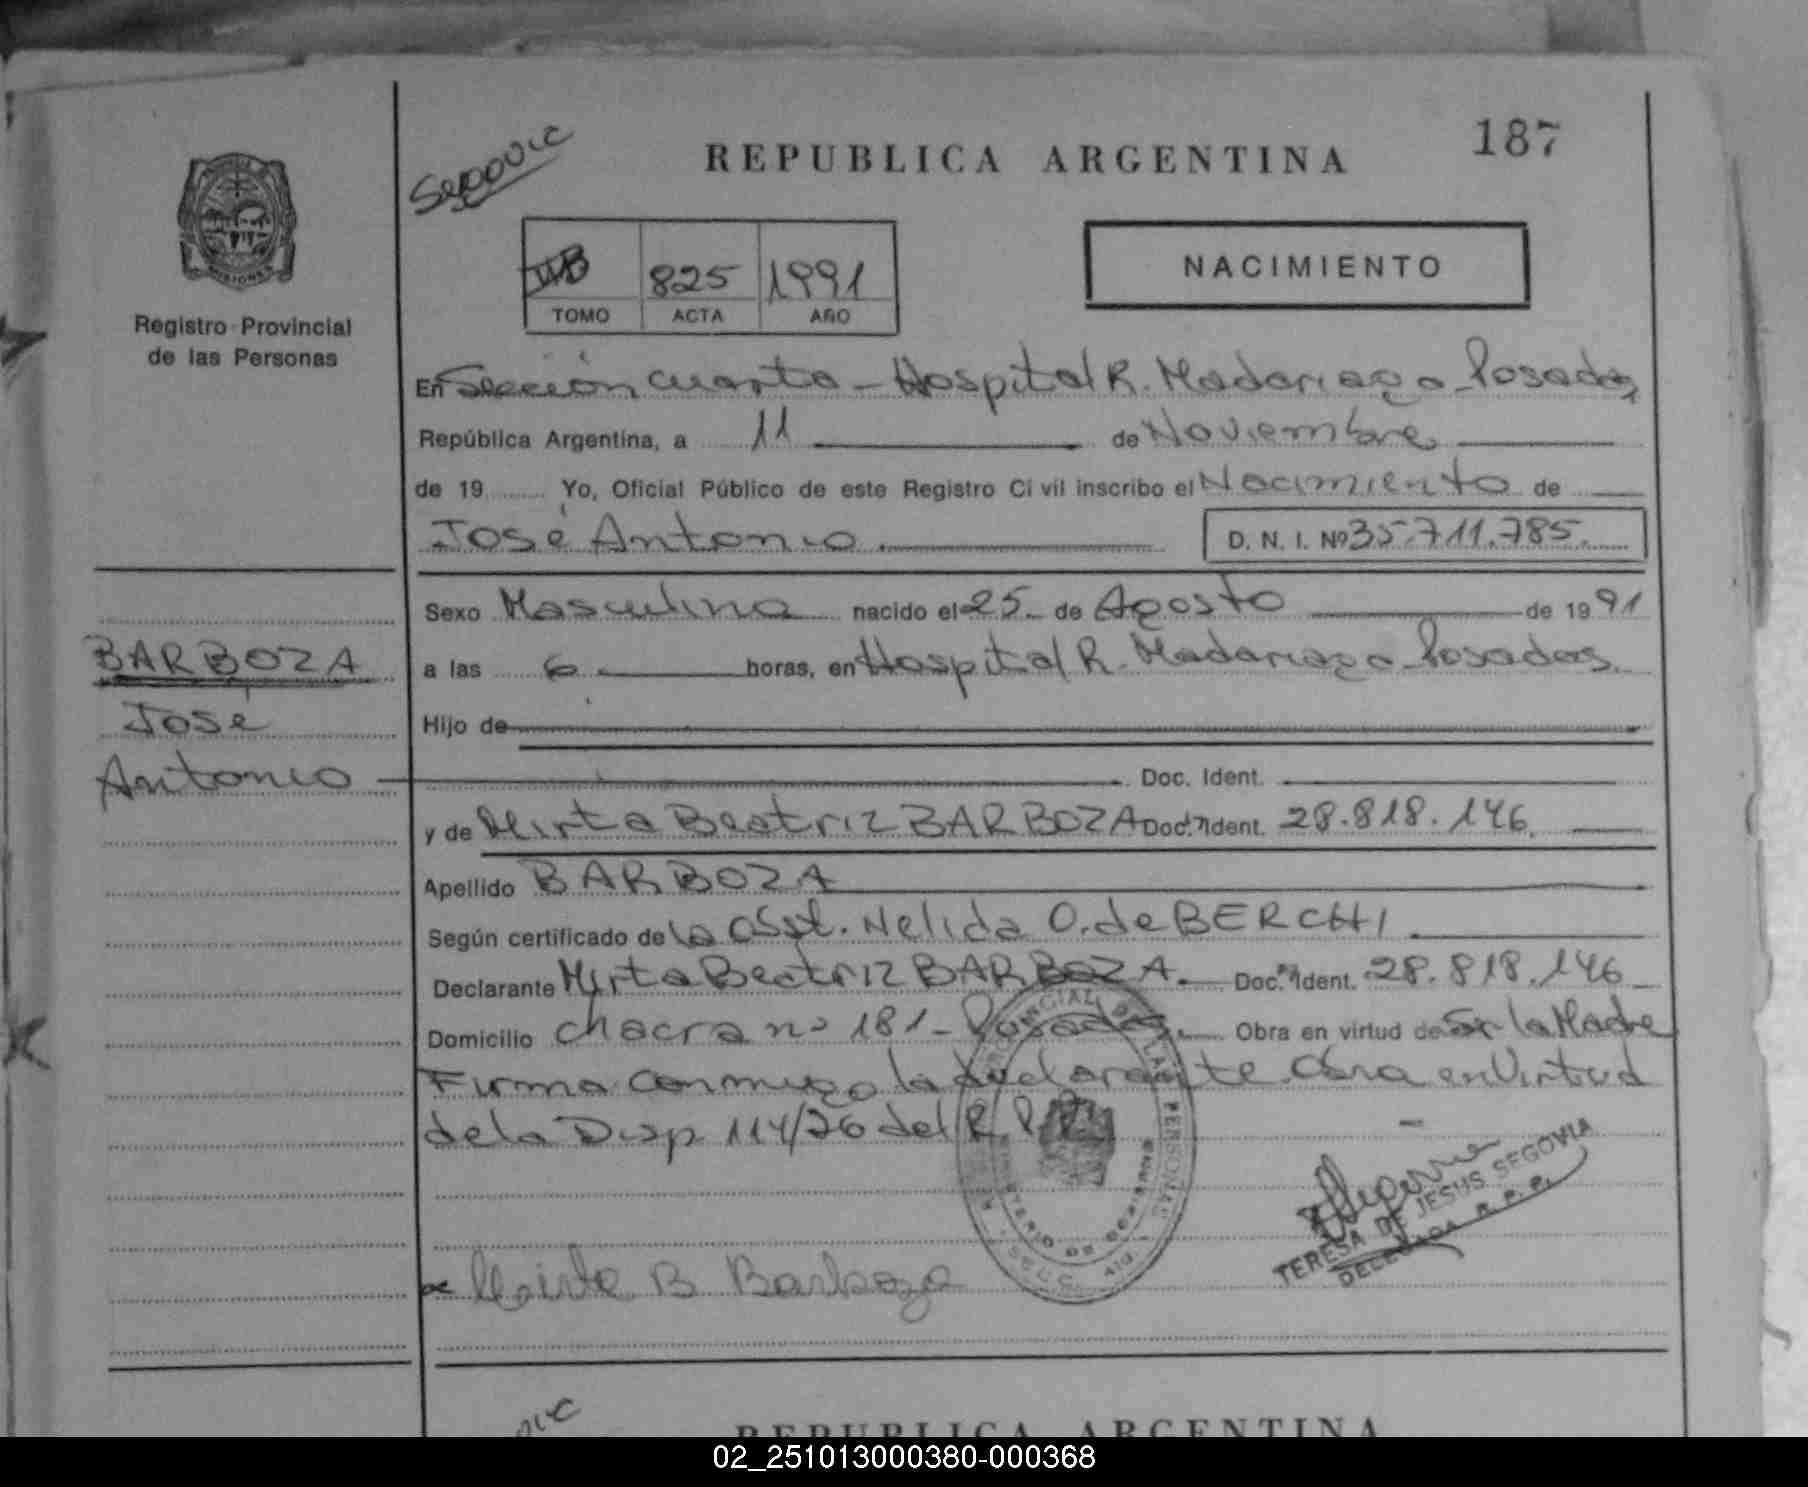 187
REPUBLICA ARGENTINA
NACIMIENTO
825 1991
TOMO ACTA AÑO
Registro Provincial
de las Personas
En Sección cuarta - Hospital R. Madariaga - Posadas,
República Argentina, a 11 de Noviembre
de 19 Yo, Oficial Público de este Registro Ci vil inscribo el Nacimiento de
José Antonio D. N. I. Nº 35.711.785.
Sexo Masculino nacido el 25 de Agosto de 19 91
BARBOZA
José
Antonio
a las 6 horas, en Hospital R. Madariaga - Posadas.
Hijo de
Doc. Ident.
y de Mirta Beatriz BARBOZA Doc. Ident. 28.818.146
Apellido BARBOZA
Según certificado de la Nelida O. de BERCHI
Declarante Mirta Beatriz BARBOZA. Doc. Ident. 28.818.146
Domicilio chacra nº 181 - Posadas. Obra en virtud de Ser la Madre
Firma conmigo la declarante. Obra en Virtud
de la Disp. 114/76 del R. P. P.
TERESA DE JESUS SEGOVIA
DELEGADA R. P. P.
Mirta B Barboza
REPUBLICA ARGENTINA
02_251013000380-000368